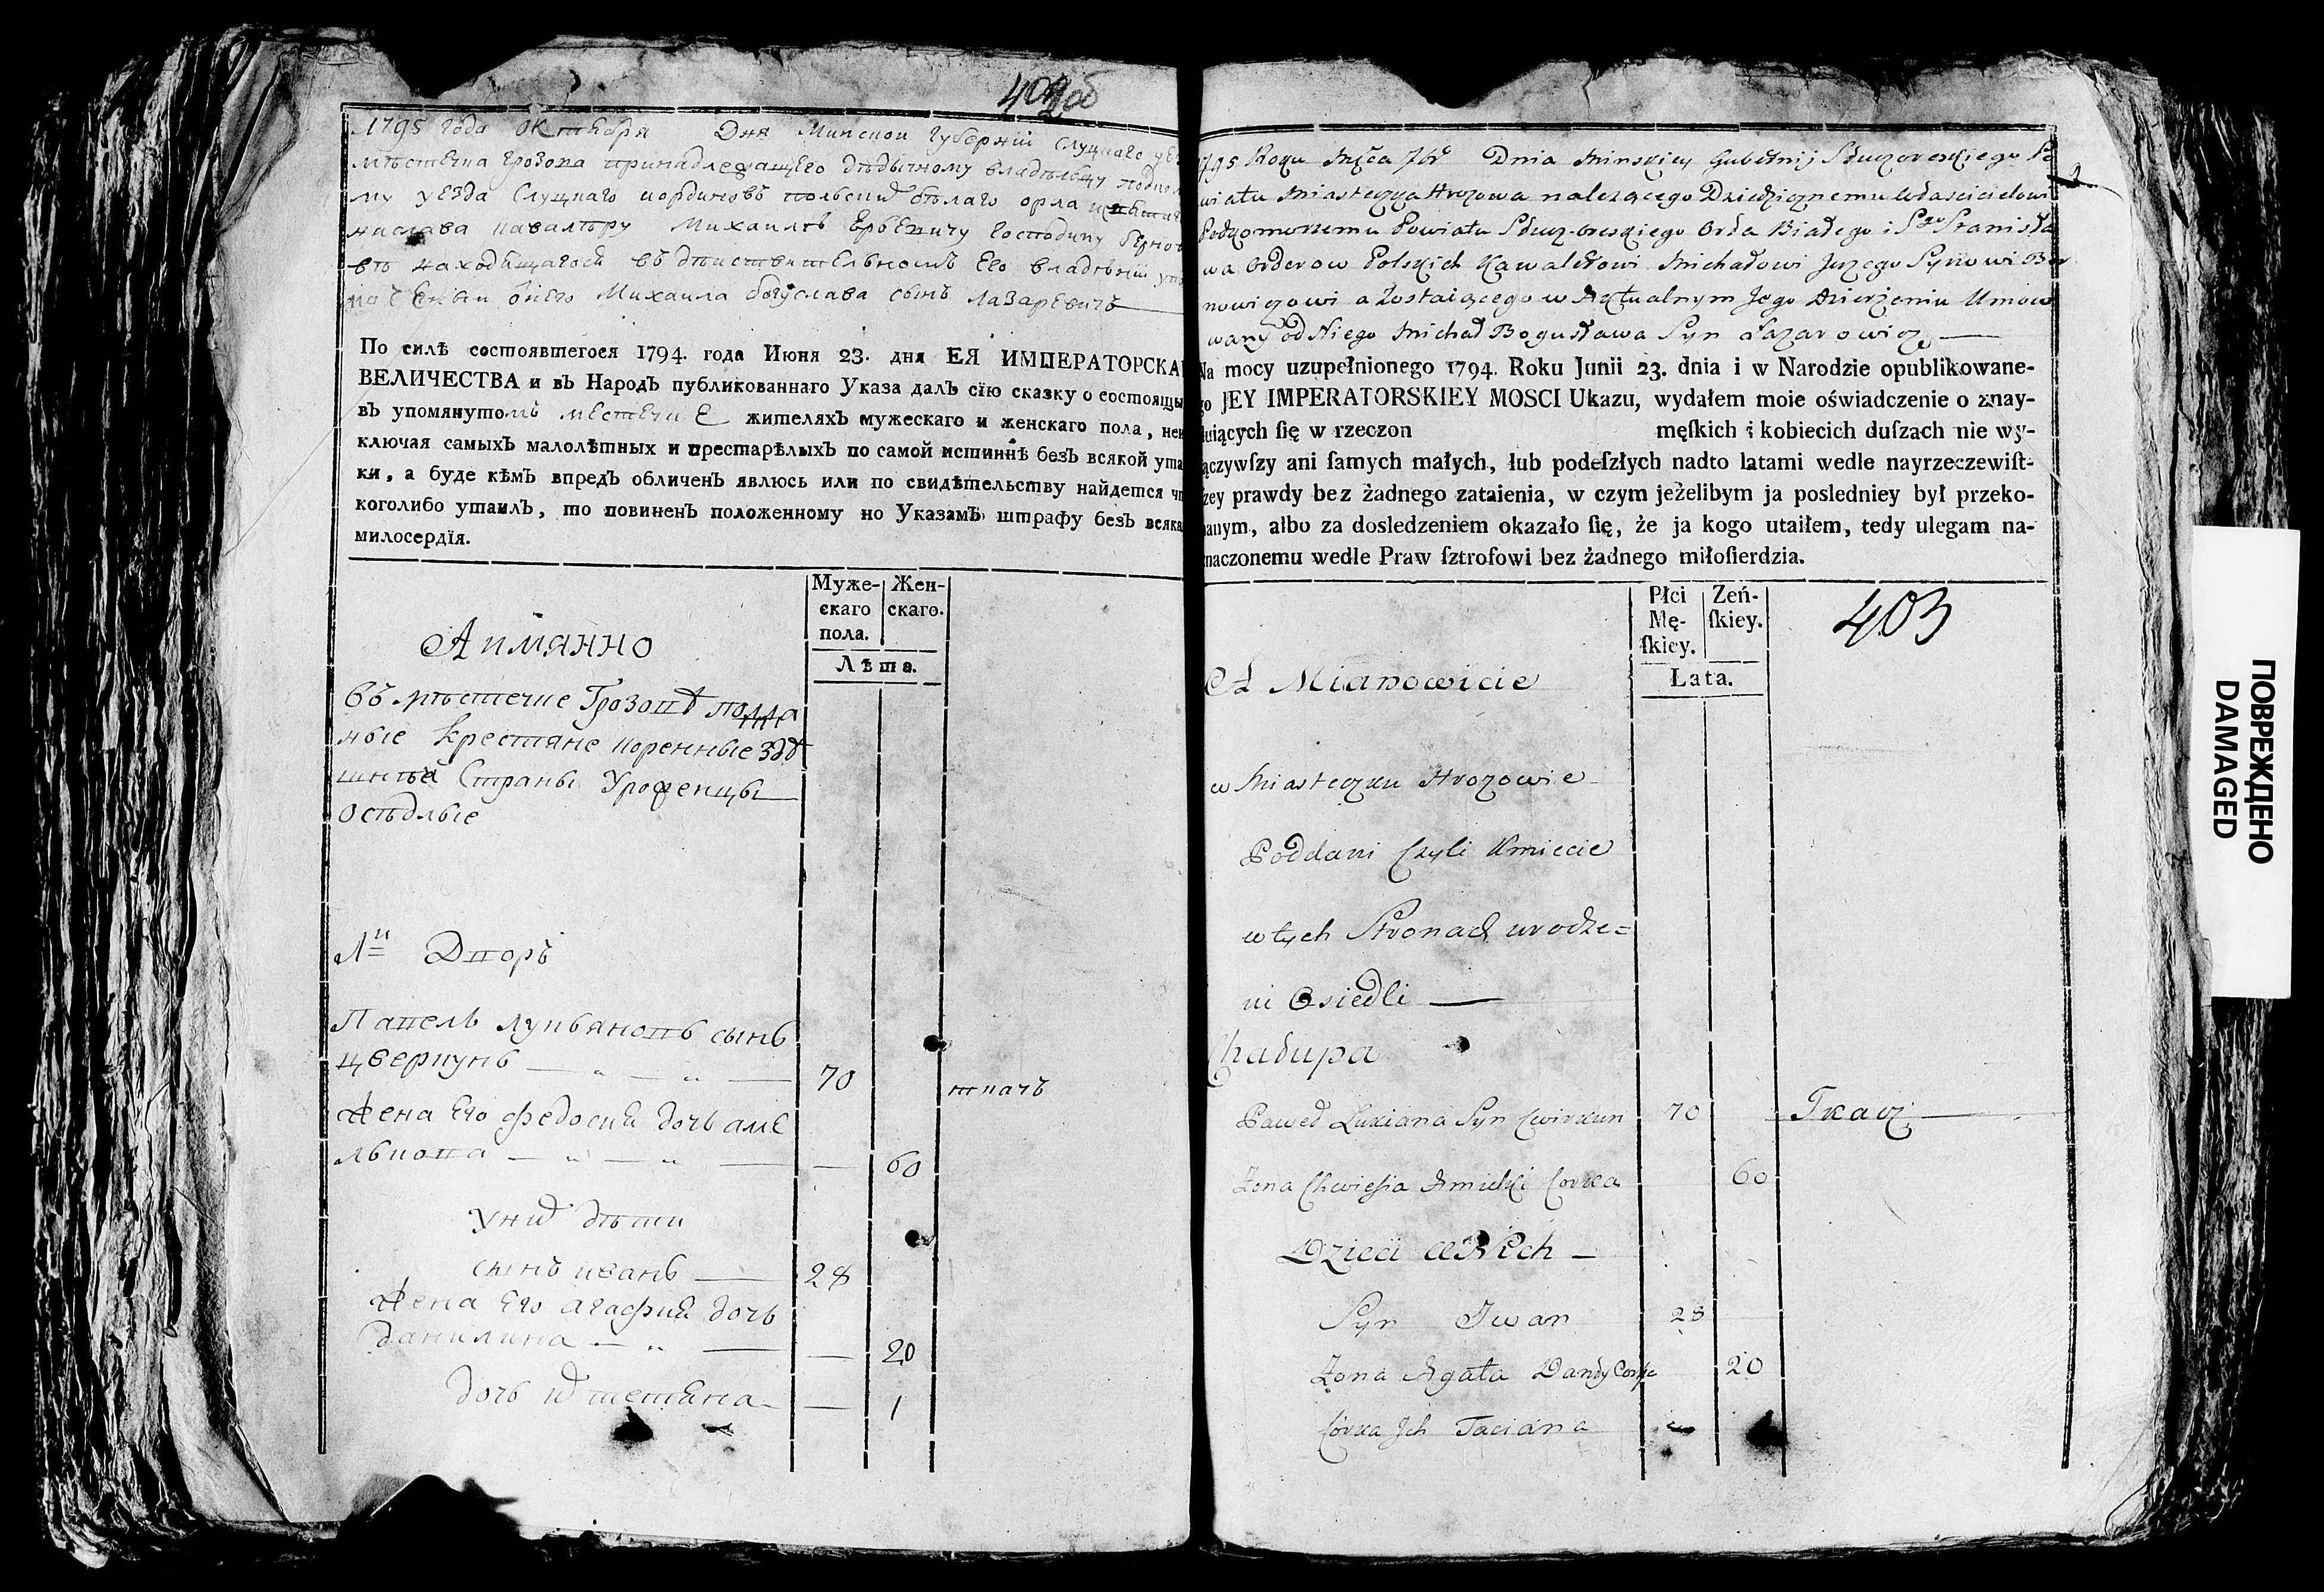 402 об
1795 года Октября Дня Минской Губерніи Слуцкаго
мѣстечка Грозова принадлежащего дѣдычному владѣльцу
му уезда Слуцкаго иордыновъ польских бѣлаго орла
нислава кавалѣру Михаилѣ Господину
находящагося въ дѣиствительномъ Его владѣніи
онего Михаила богуслава сынъ Лазаревичъ
По силѣ состоявшегося 1794. года Июня 23. дня ЕЯ ИМПЕРАТОРСКА
ВЕЛИЧЕСТВА и въ Народъ публикованнаго Указа далъ сїю сказку о состоящы
въ упомянутомъ местечкѣ жителяхъ мужескаго и женскаго пола, неи
ключая самыхъ малолѣтныхъ и престарѣлыхъ по самой истиннѣ безъ всякой ута
ки, а буде кѣмъ впредъ обличенъ явлюсь или по свидѣтельству найдется чт
коголибо утаилъ, то повиненъ положенному по Указамъ штрафу безъ всяка
милосердїя.
Муже-
скаго
пола.
Жен-
скаго.
Лѣта.
Аимянно
въ мѣстечке Грозовѣ подда
ные крестяне коренные здѣ
шнѣй Страны Уроженцы
Осѣдлые
Дворъ
Павелъ лукьяновъ сынъ
цверкунъ 70 ткачъ
жена Его федосия дочь аме
лькова 60
У них дѣти
сынъ иванъ 28
жена Его агафия дочь
данилина 20
дочь их тетяна 1
1795 Roku Mca 7br Dnia Minskiey Gubernij Słuczoreskiego Po
wiatu Miasteczka Hrozowa nalezącego Dziedzicznemu Włascicielowi
Podkomorzemu Powiatu Orła Białego i Sgo Stanisła
wa Orderow Polskich Kawalerowi Michałowi Jerzego Synowi Ber
nowiczowi a Zostaiącego w Aktualnym Jego Dzierżeniu Umoco
wany od Niego Michał Bogusława Syn Łazarowicz
Na mocy uzupełnionego 1794. Roku Junii 23. dnia i w Narodzie opublikowane-
go JEY IMPERATORSKIEY MOSCI Ukazu, wydałem moie oświadczenie o znay-
duiących ſię w rzeczon męſkich i kobiecich duſzach nie wy-
ączywſzy ani ſamych małych, łub podeſzłych nadto latami wedle nayrzeczewiſt-
zey prawdy bez żadnego zataienia, w czym jeżelibym ja posledniey był przeko-
nanym, albo za dosledzeniem okazało ſię, że ja kogo utaiłem, tedy ulegam na-
znaczonemu wedle Praw ſztrofowi bez żadnego miłoſierdzia.
Płci
Mę-
ſkiey.
Zeń-
ſkiey.
Lata.
403
A Mianowicie
w Miasteczku Hrozowie
Poddani Czyli Kmiecie
w tych Stronach urodze=
ni Osiedli
Chałupa
Paweł Łukiana Syn Cwirkun 70 Tkacz
Zona Chwiesia Corka 60
Dzieci w Nich
Syn Iwan 28
Zona Agata Corka 20
Córka Jch Taciana
ПОВРЕЖДЕНО
DAMAGED